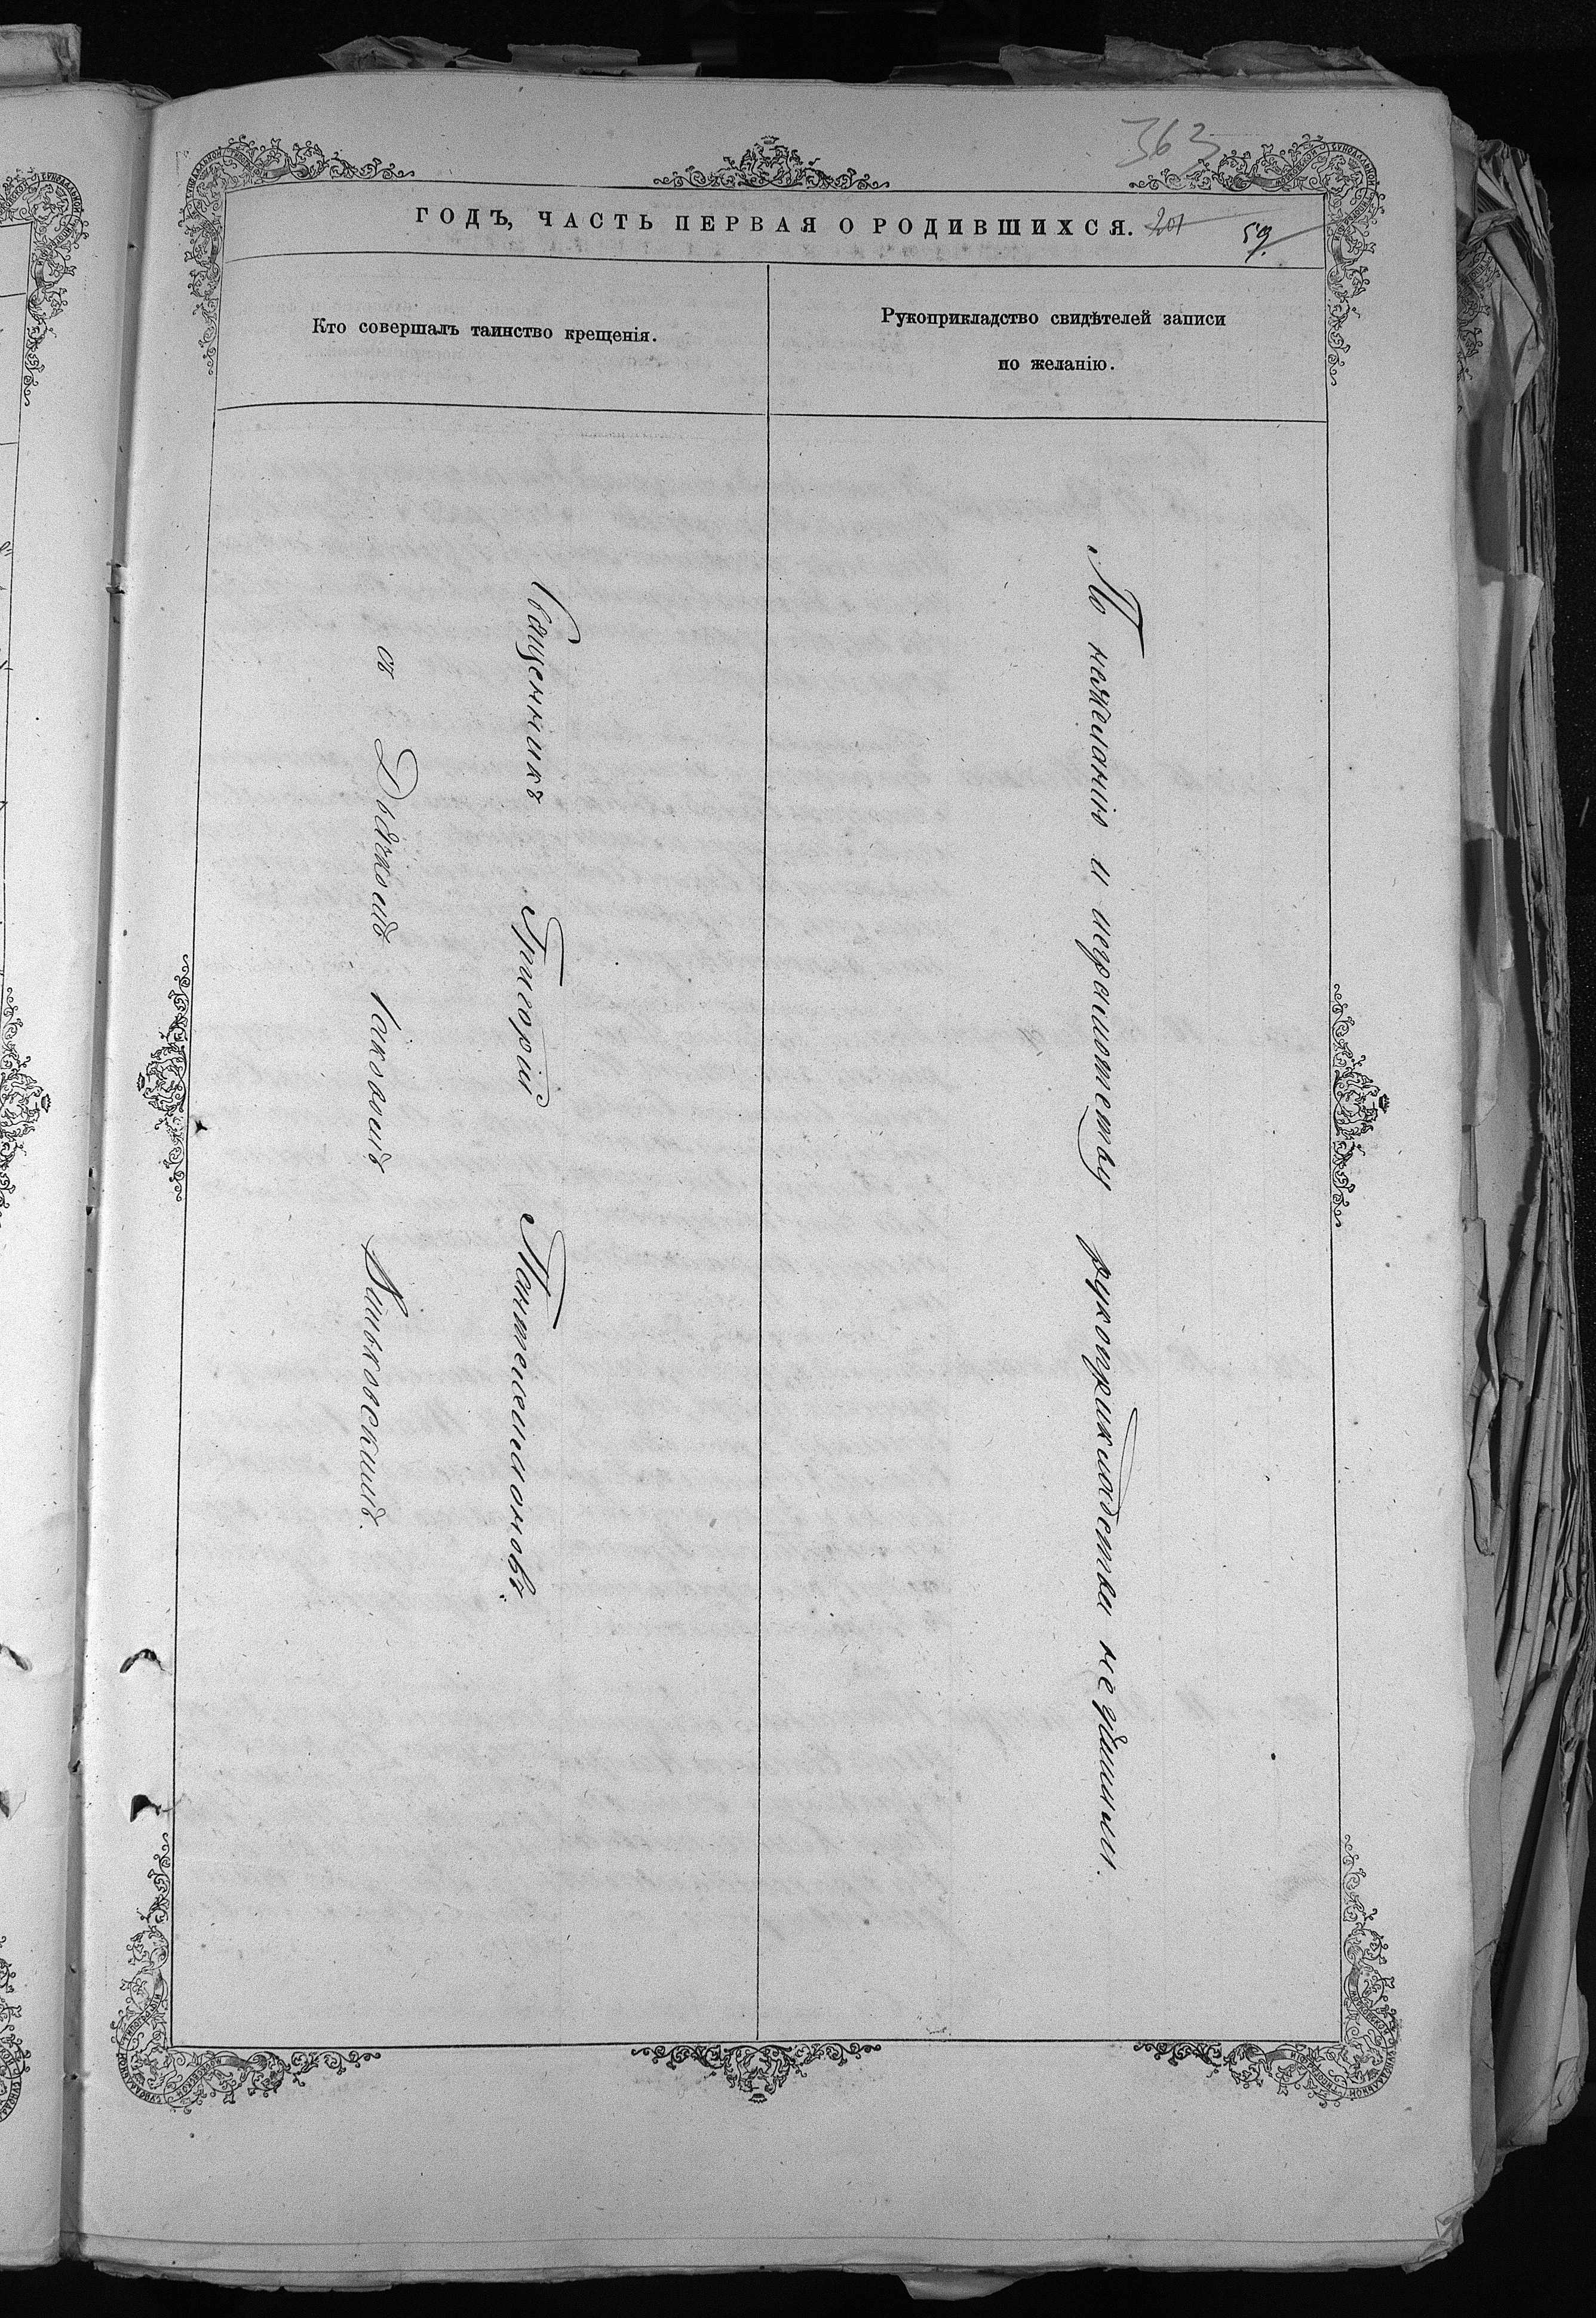 363
ГОДЪ, ЧАСТЬ ПЕРВАЯ О РОДИВШИХСЯ. 201 59.
Кто совершалъ таинство крещенія.
Рукоприкладство свидѣтелей записи
по желанію.
Священникъ Григорій Пантелеимоновъ.
съ Дьячкомъ Іаковомъ
По нежеланію и неграмотству рукоприкладства не учинили.